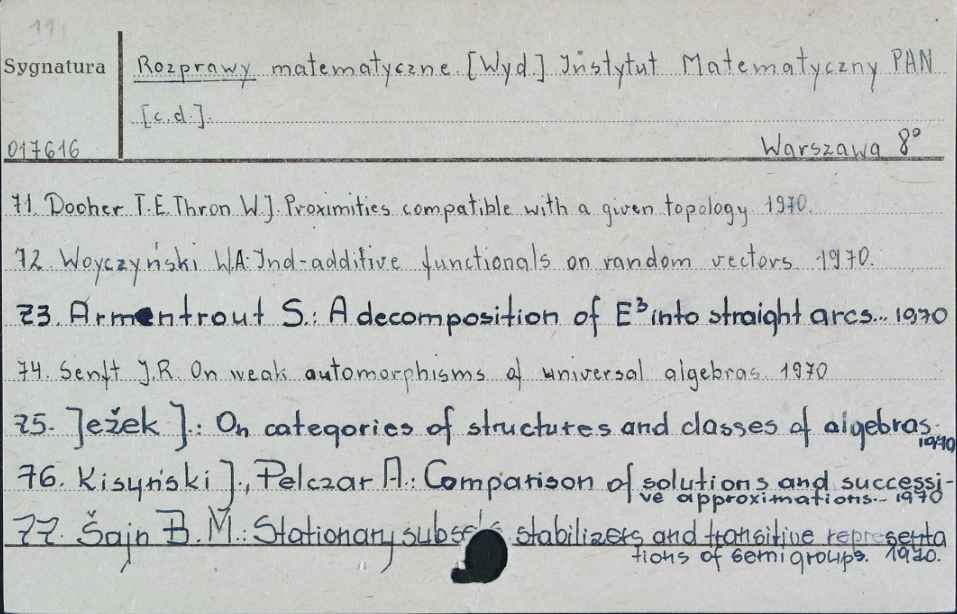 11.
Sygnatura Rozprawy matematyczne. [Wyd.] Instytut Matematyczny PAN
[c.d.].
017616 Warszawa 8°
71. Dooher T.E. Thron W.J. Proximities compatible with a given topology 1970.
72. Woyczyński W.A: Ind-additive functionals on random vectors 1970.
73. Armentrout S.: A decomposition of E³ into straight arcs... 1970
74. Senft J.R. On weak automorphisms of universal algebras. 1970
75. Ježek J.: On categories of structures and classes of algebras.
1970
76. Kisyński J., Pelczar A.: Comparison of solutions and successi-
ve approximations... 1970
77. Šajn B. M.: Stationary subsets stabilizers and transitive representa
tions of semigroups. 1970.